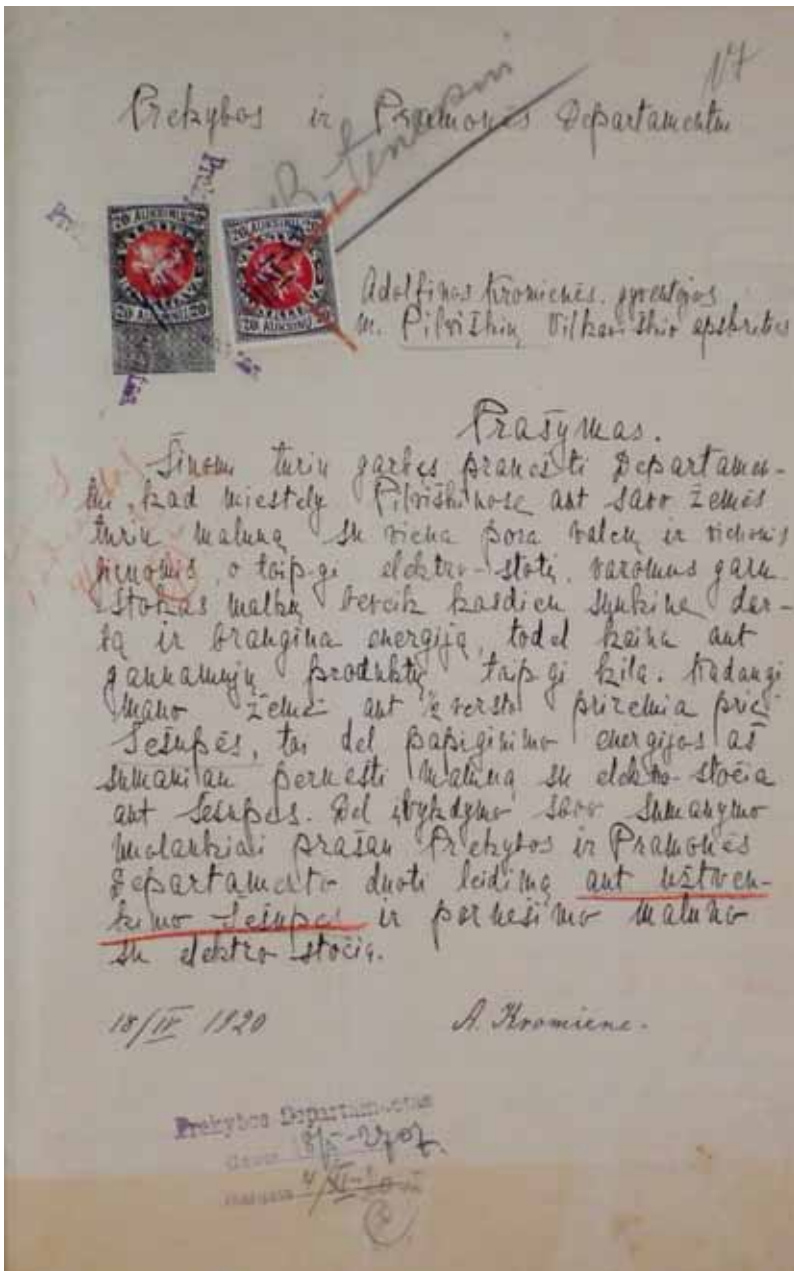 17
Prekybos ir Pramonės Departamentui
20 AUKSINŲ 20
20 AUKSINŲ 20
20 AUKSINŲ 20
20 AUKSINŲ 20
Adolfinos Kromienės, gyventojos
m. Pilviškių Vilkaviškio apskrities
Prašymas.
Šiuomi turiu garbės pranešti Departamen-
tui, kad miestely Pilviškiuose ant savo žemės
turiu maluną su viena pora valcų ir
girnomis, o taip-gi elektro-stotį, varomus garu.
Stokas malkų beveik kasdien sunkina dar-
bą ir brangina energiją, todel kaina ant
gaunamųjų produktų taip-gi kila. Kadangi
mano žemė ant ½ versto priremia prie
Šešupės, tai del papiginimo energijos aš
sumaniau pernešti maluną su elektro-stočia
ant Šešupes. Del įvykdymo savo sumanymo
malonkiai prašau Prekybos ir Pramonės
Departamento duoti leidimą ant užtven-
kimo Šešupes ir pernešimo maluno
su elektro-stočia.
18/IV 1920 A. Kromiene.
Prekybos Departamentas
Gauta